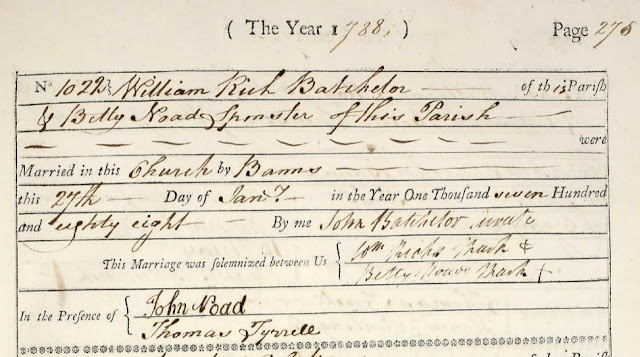 ( The Year 1788. ) Page 275
No 1022 William Rich Batchelor of this Parish
& Betty Noad Spinster of this Parish
were
Married in this Church by Banns
this 27th Day of Jany in the Year One Thousand seven Hundred
and eighty eight By me John Batchelor Curate
This Marriage was solemnized between Us { Wm Richs Mark +
Betty Mark +
In the Presence of { John Noad
Thomas Tyrrell